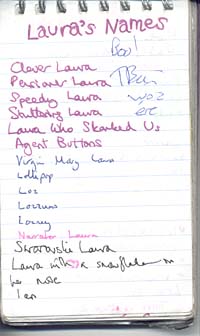 Laura's Names
Boo!
Clever Laura
Pensioner Laura
Speedy Laura
woz
Stuttering Laura
ere
Laura Who Skanked Us
Agent Buttons
Virgin Mary Laura
Lollipop
Loz
Lozzums
Lozzey
Narrator Laura
Swarovski Laura
Laura with a snowflake on
her nose